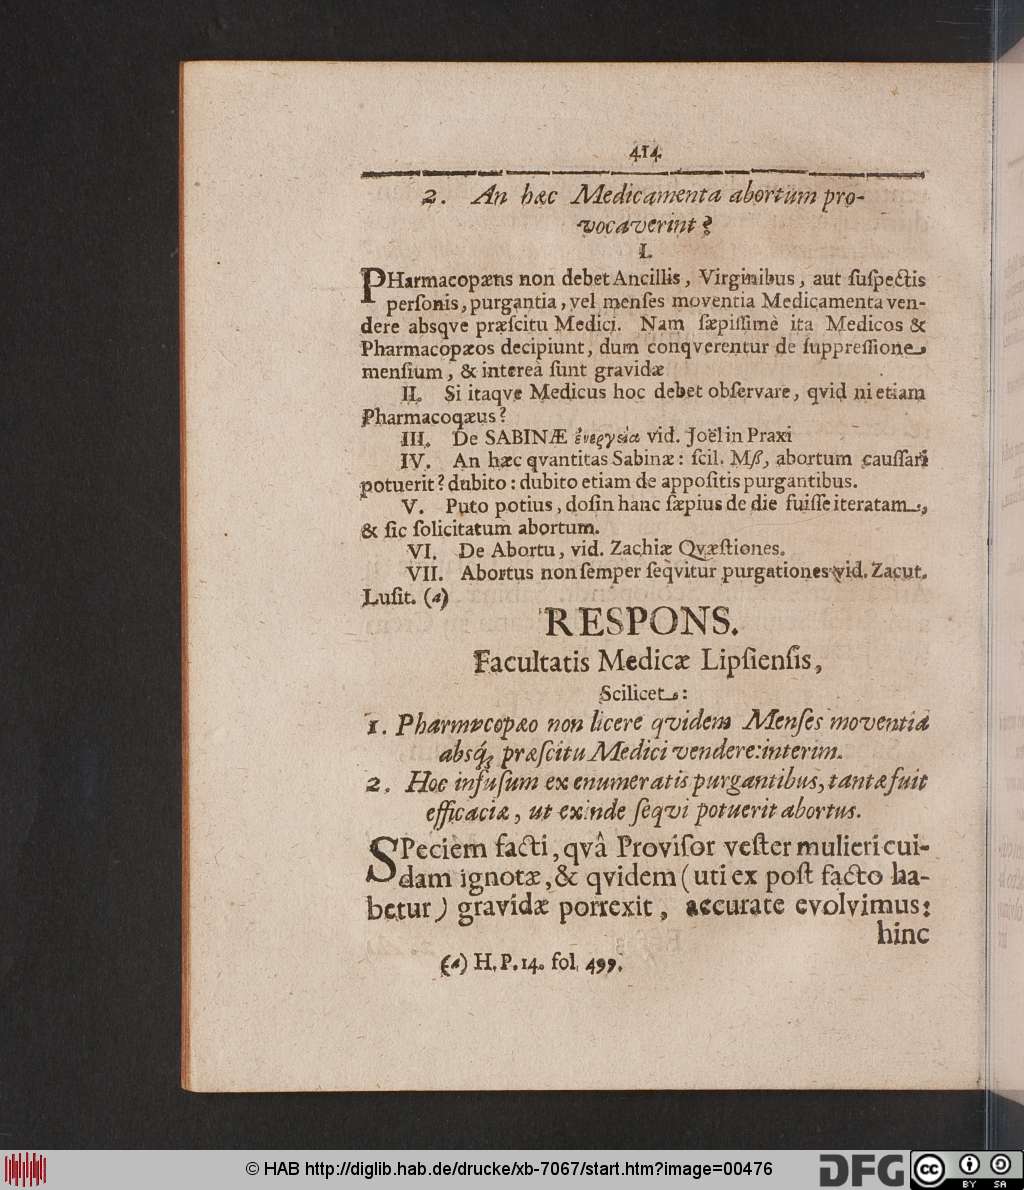 414
2. An hæc Medicamenta abortum pro-
vocaverint?
I.
PHarmacopæus non debet Ancillis, Virginibus, aut ſuſpectis
perſonis, purgantia, vel menſes moventia Medicamenta ven-
dere absqve præſcitu Medici. Nam ſæpiſſimè ita Medicos &
Pharmacopæos decipiunt, dum conqverentur de ſuppreſſione
menſium, & intereà ſunt gravidæ
II. Si itaqve Medicus hoc debet obſervare, qvid ni etiam
Pharmacoqæus?
III. De SABINÆ ἐνεργεία vid. Joël in Praxi
IV. An hæc qvantitas Sabinæ: ſcil. Mß, abortum cauſſari
potuerit? dubito: dubito etiam de appoſitis purgantibus.
V. Puto potius, doſin hanc ſæpius de die fuiſſe iteratam,
& ſic ſolicitatum abortum.
VI. De Abortu, vid. Zachiæ Qvæſtiones.
VII. Abortus non ſemper ſeqvitur purgationes vid. Zacut.
Luſit. (a)
RESPONS.
Facultatis Medicæ Lipſienſis,
Scilicet:
1. Pharmacopæo non licere qvidem Menſes moventia
absq́; præſcitu Medici vendere: interim.
2. Hoc infuſum ex enumeratis purgantibus, tantæ fuit
efficaciæ, ut exinde ſequi potuerit abortus.
SPeciem facti, qvâ Proviſor veſter mulieri cui-
dam ignotæ, & qvidem (uti ex poſt facto ha-
betur) gravidæ porrexit, accurate evolvimus:
hinc
(a) H. P. 14. fol. 499.
© HAB http://diglib.hab.de/drucke/xb-7067/start.htm?image=00476
DFG
cc
BY SA